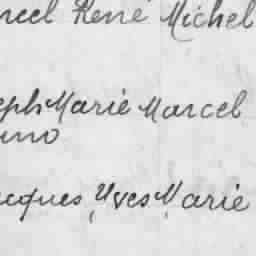 rcel René Michel
ephs Marie Marcel
uno
cques, Yves, Marie